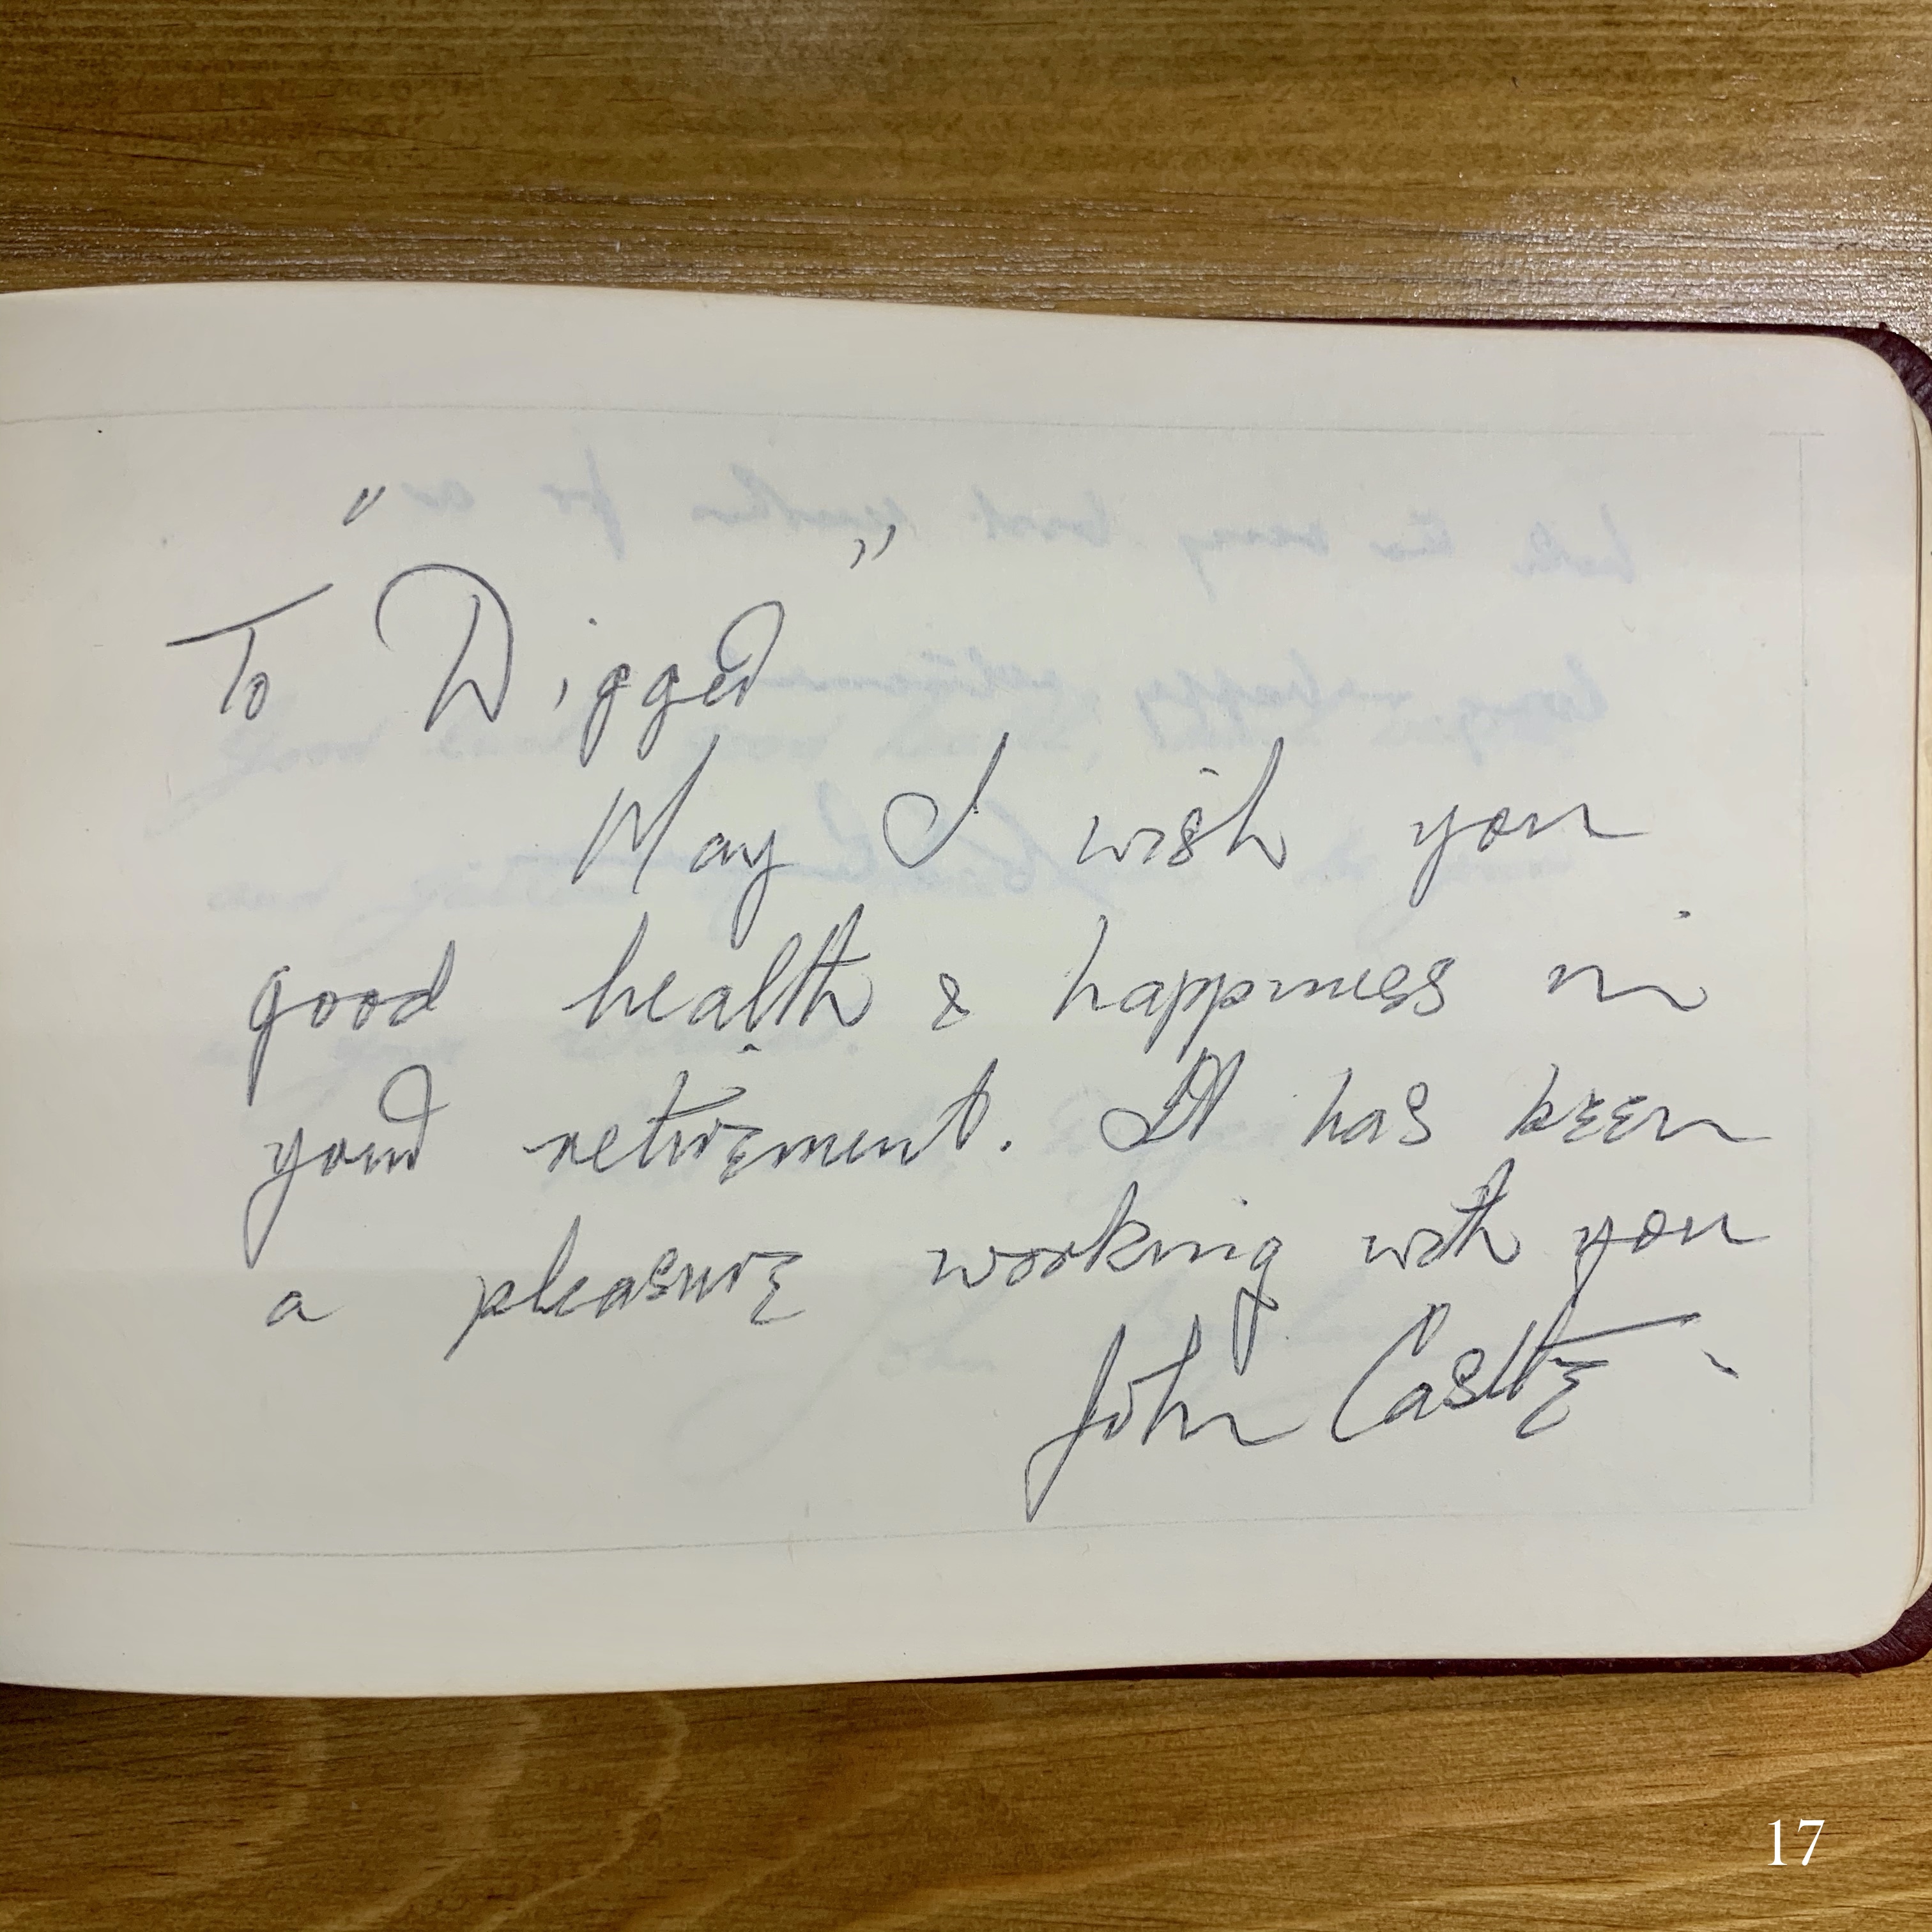 To "Digger"
May I wish you
good health & happiness in
your retirement. It has been
a pleasure working with you
John
17